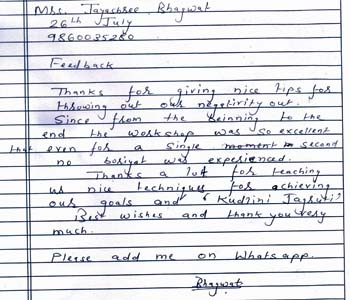 Mrs. Jayashree Bhagwat
26th July
9860035280
Feedback
Thanks for giving nice tips for
throwing out our negetivity out.
Since from the beinning to the
end the workshop was so excellent
that even for a single moment in second
no boriyat was experienced.
Thanks a lot for teaching
us nice techniques for achieving
our goals and "Kudlini Jagruti"
Best wishes and thank you very
much.
Please add me on Whatsapp.
Bhagwat